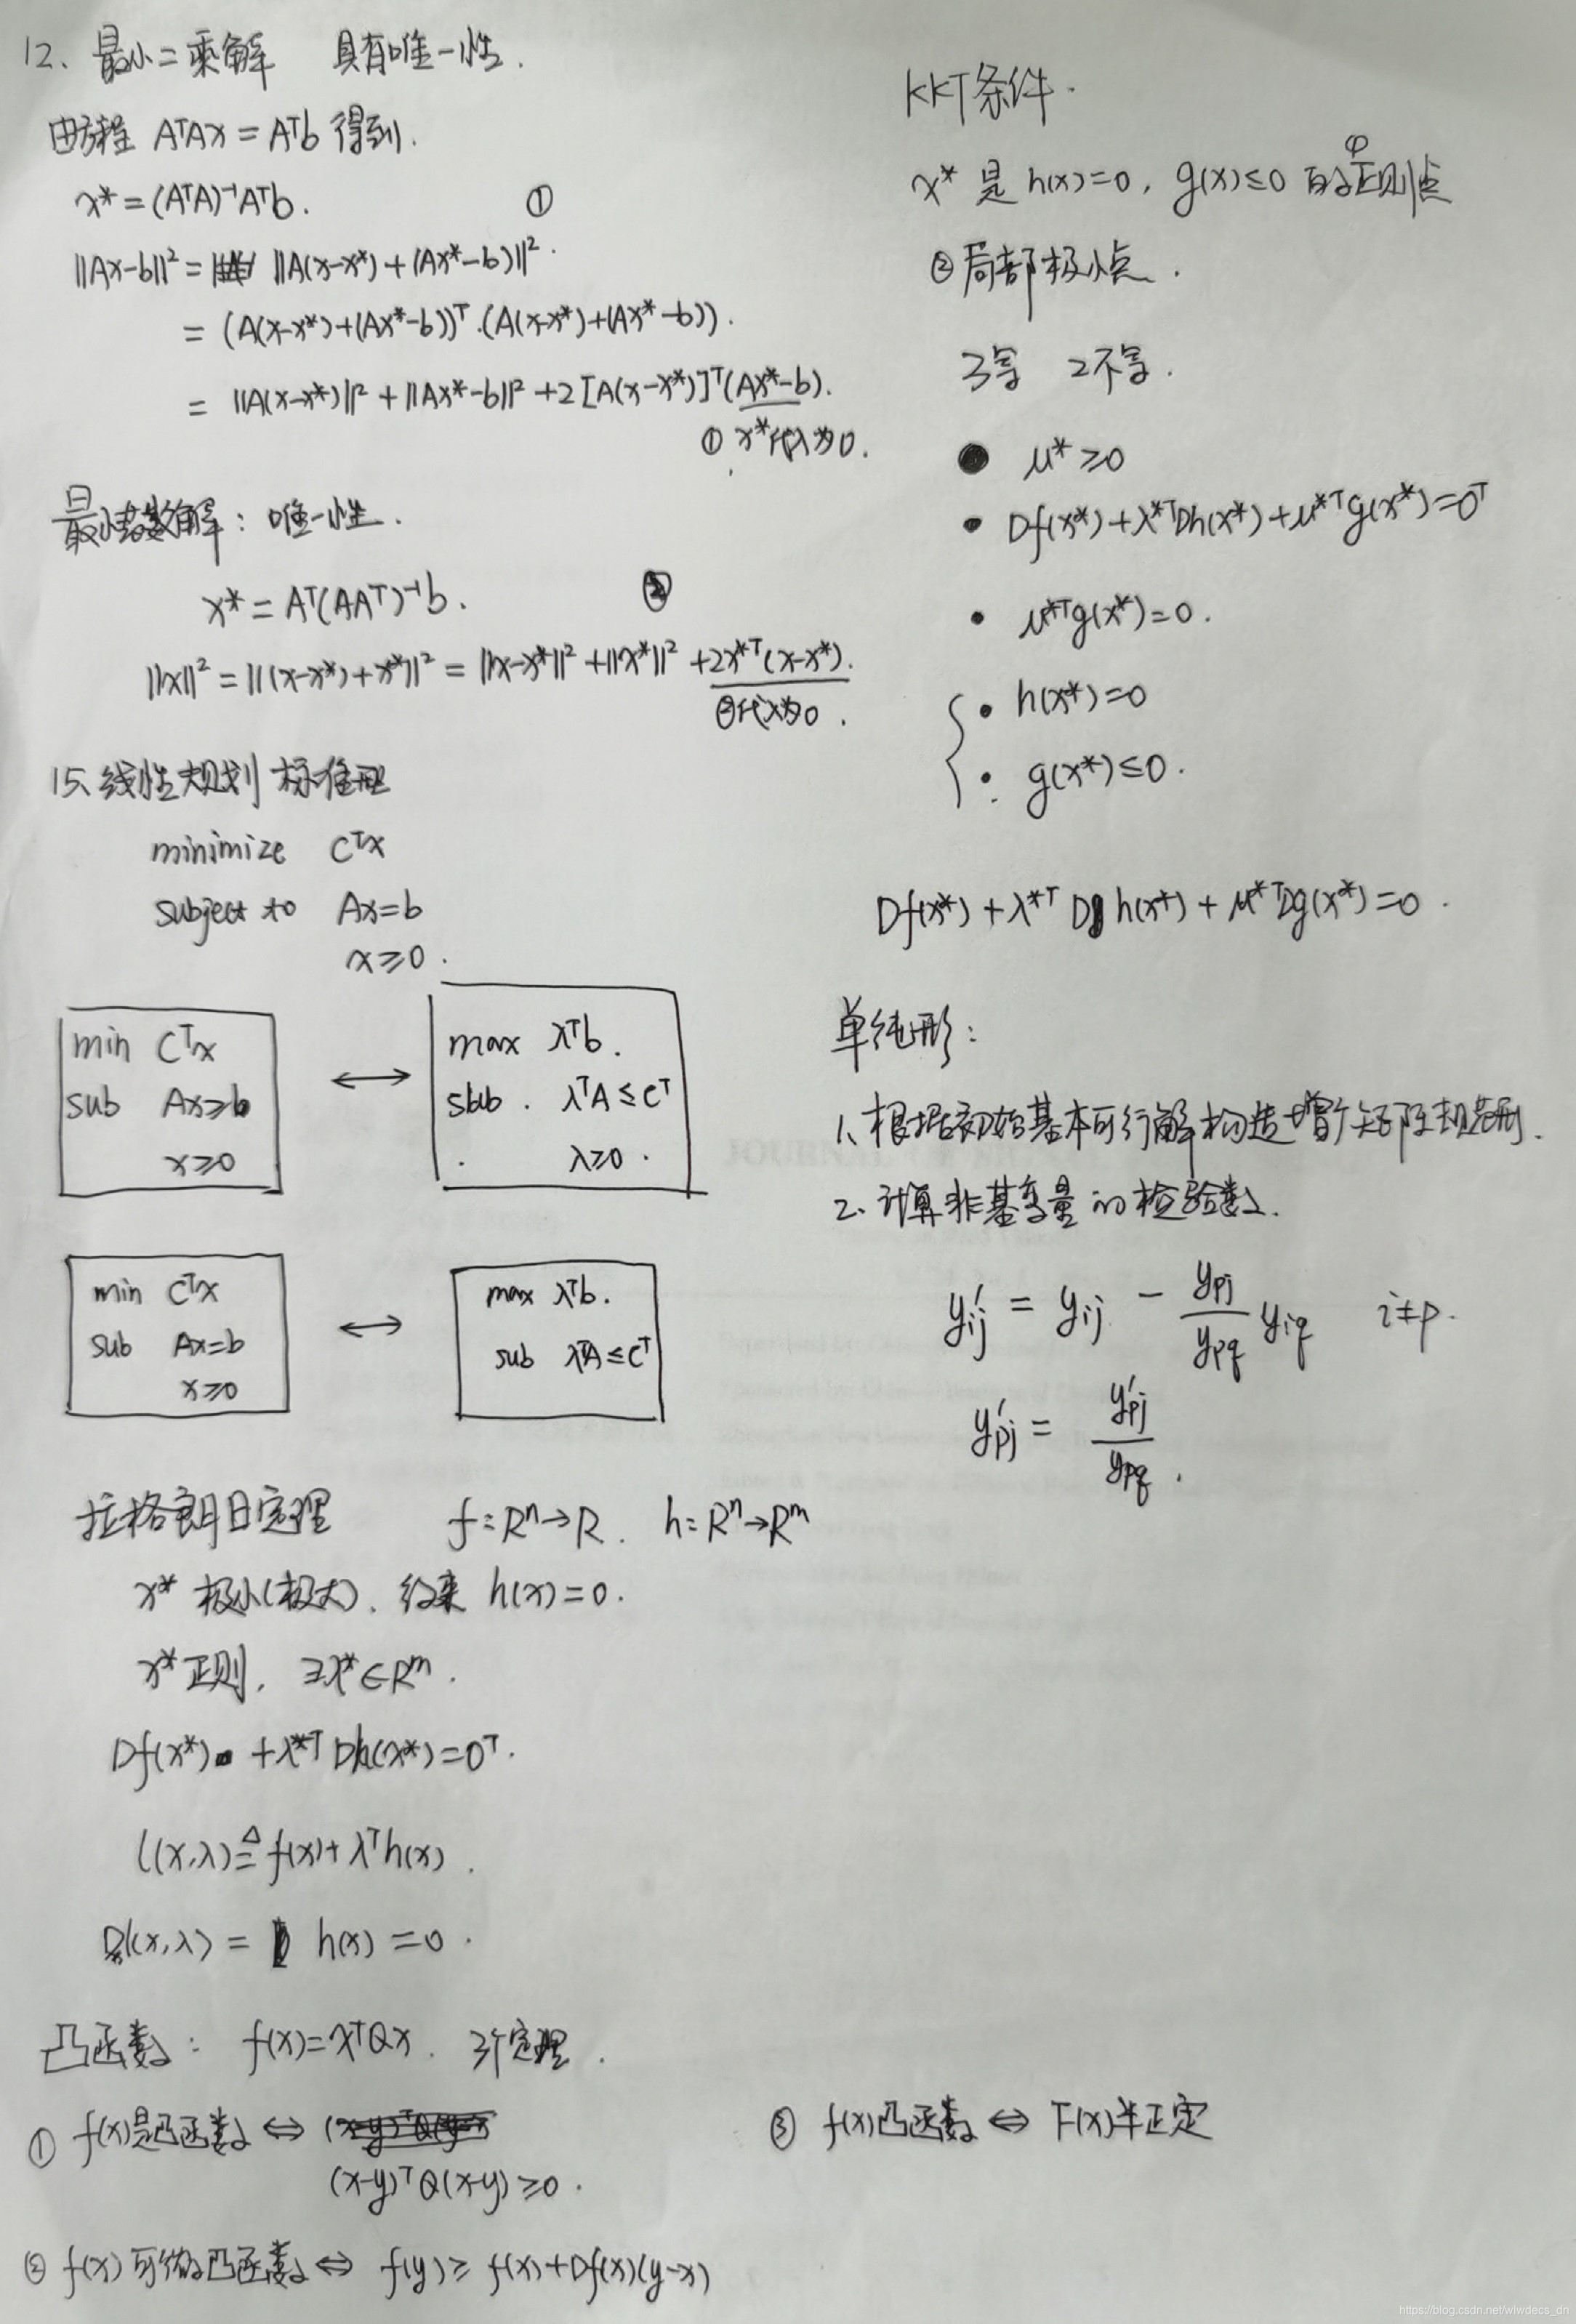 12、最小二乘解 具有唯一性.
由方程 AᵀAx = Aᵀb 得到.
x* = (AᵀA)⁻¹Aᵀb. ①
||Ax-b||² = ||A(x-x*) + (Ax*-b)||².
= (A(x-x*)+(Ax*-b))ᵀ.(A(x-x*)+(Ax*-b)).
= ||A(x-x*)||² + ||Ax*-b||² + 2[A(x-x*)]ᵀ(Ax*-b).
① x*代入为0.
最小范数解: 唯一性.
x* = Aᵀ(AAᵀ)⁻¹b. ②
||x||² = ||(x-x*)+x*||² = ||x-x*||² + ||x*||² + 2x*ᵀ(x-x*).
②代入为0.
15、线性规划 标准型
minimize Cᵀx
subject to Ax=b
x≥0.
min Cᵀx
sub Ax≥b
x≥0
↔
max λᵀb.
sbub. λᵀA ≤ Cᵀ
λ≥0.
min Cᵀx
sub Ax=b
x≥0
↔
max λᵀb.
sub λᵀA ≤ Cᵀ
拉格朗日定理 f: Rⁿ→R. h: Rⁿ→Rᵐ
x* 极小(极大)、约束 h(x)=0.
x* 正则, ∃λ*∈Rᵐ.
Df(x*) + λ*ᵀDh(x*)=0ᵀ.
l(x,λ) ≜ f(x)+λᵀh(x).
Dl(x,λ) = h(x) = 0.
凸函数: f(x)=xᵀQx. 3个定理.
① f(x)是凸函数 ⇔
(x-y)ᵀQ(x-y) ≥0.
② f(x)可微凸函数 ⇔ f(y) ≥ f(x)+Df(x)(y-x)
③ f(x)凸函数 ⇔ F(x)半正定
KKT条件.
x* 是 h(x)=0, g(x)≤0 的正则点
②局部极小点.
3等 2不等.
• μ* ≥0
• Df(x*)+λ*ᵀDh(x*)+μ*ᵀg(x*)=0ᵀ
• μ*ᵀg(x*)=0.
• h(x*)=0
• g(x*)≤0.
Df(x*) + λ*ᵀ D h(x*) + μ*ᵀDg(x*)=0.
单纯形:
1、根据初始基本可行解构造增广矩阵规范型.
2、计算非基变量的检验数.
y'ij = yij - ypj/ypq yiq i≠p.
y'pj = y'pj/ypq.
https://blog.csdn.net/wlwdecs_dn